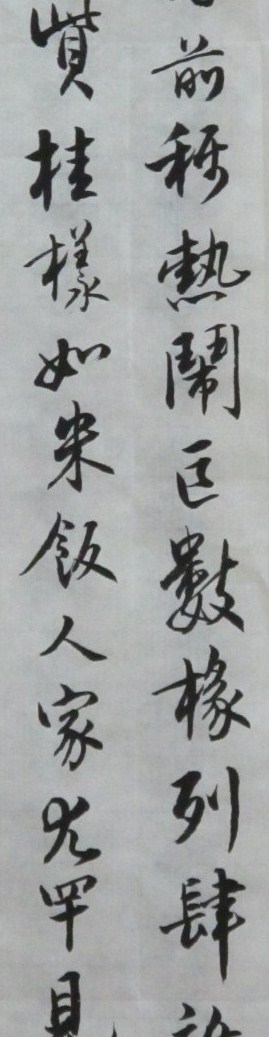 前稱熱鬧區數椽列肆
貲桂樣如米飯人家尤罕見